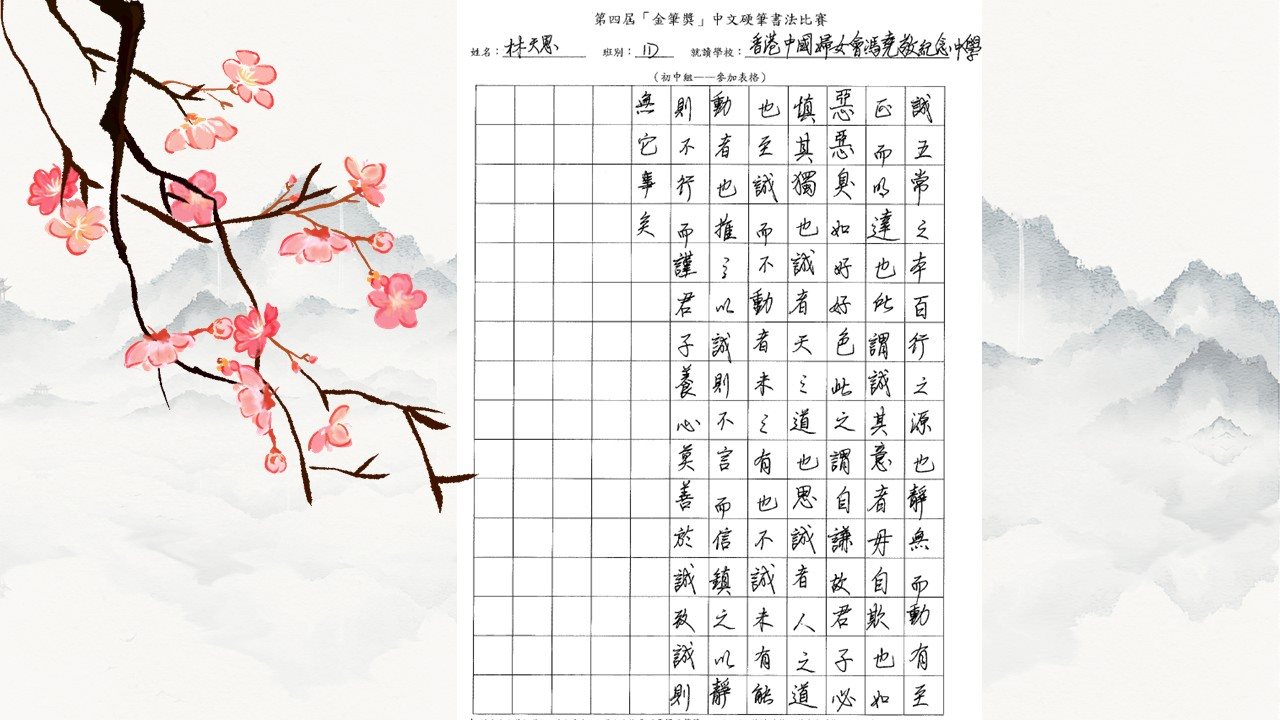 第四屆「金筆獎」中文硬筆書法比賽
姓名：林天恩 班別：1D 就讀學校：香港中國婦女會馮堯敬紀念中學
（初中組——參加表格）
誠五常之本百行之源也靜無而動有至
正而明達也所謂誠其意者毋自欺也如
惡惡臭如好好色此之謂自謙故君子必
慎其獨也誠者天之道也思誠者人之道
也至誠而不動者未之有也不誠未有能
動者也推之以誠則不言而信鎮之以靜
則不行而謹君子養心莫善於誠致誠則
無它事矣